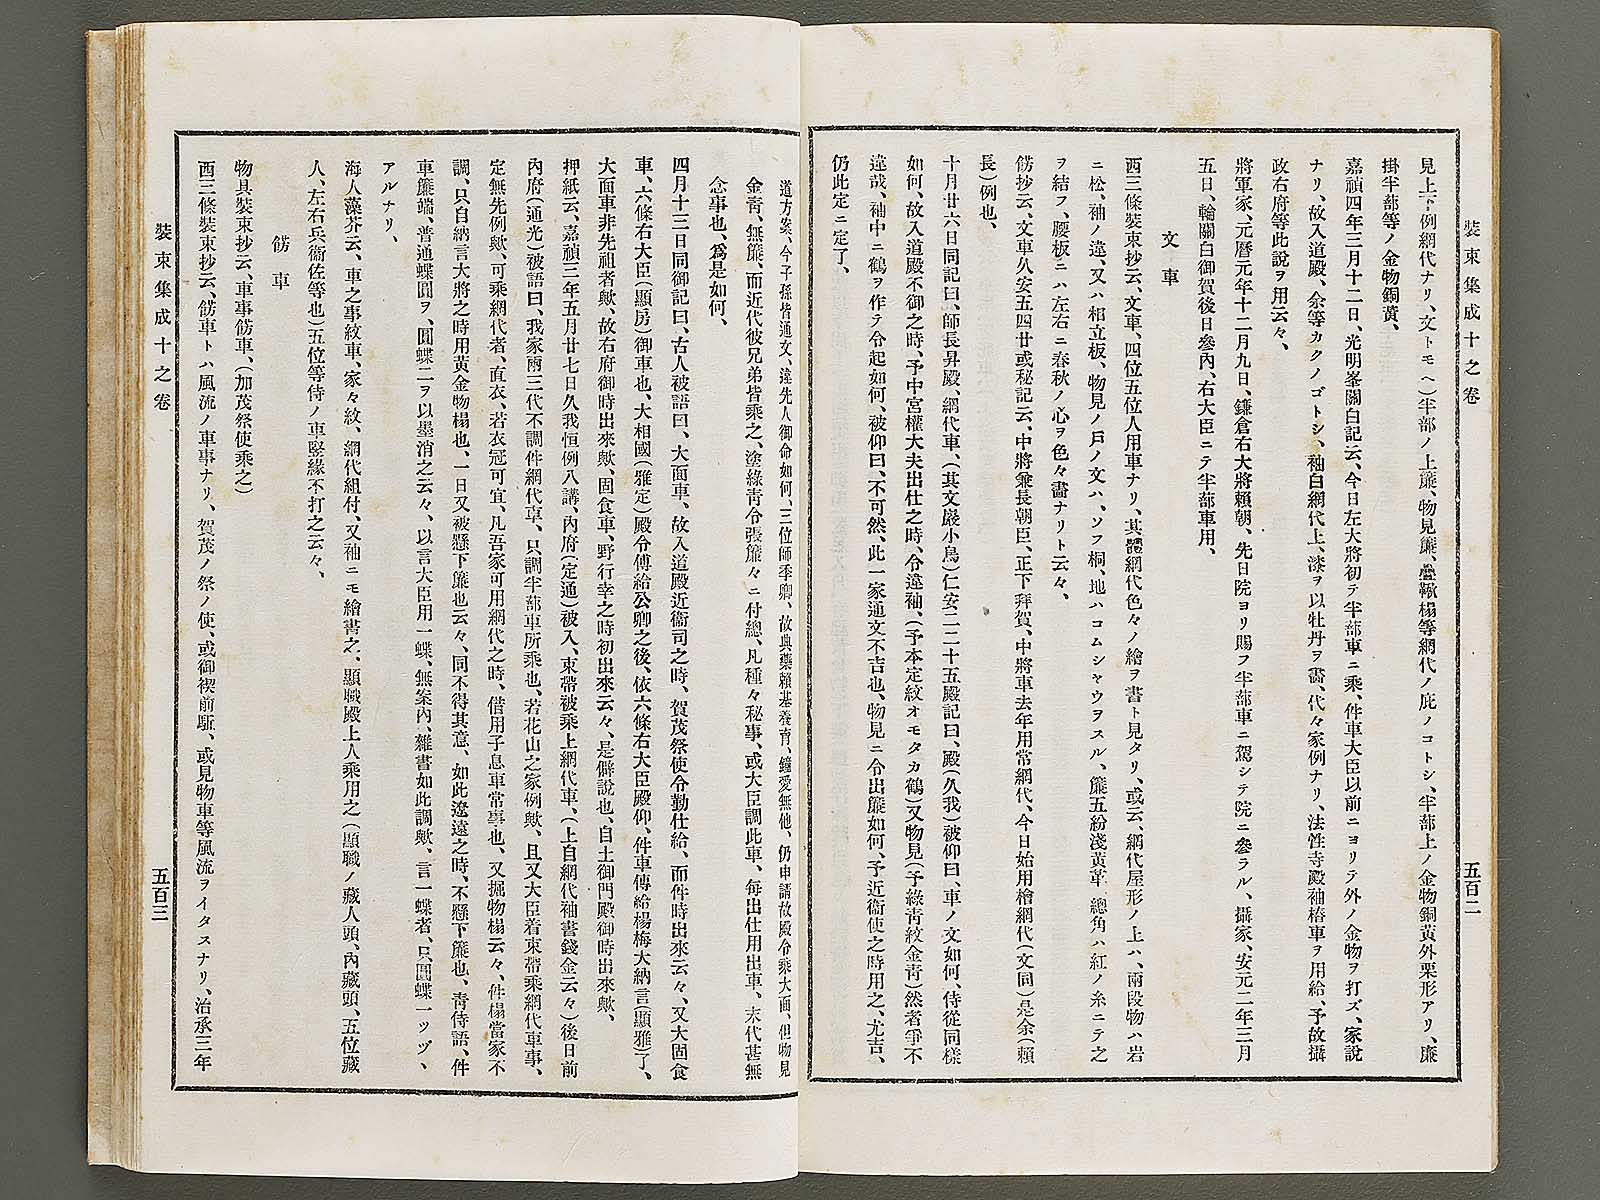 裝束集成十之卷
五百二
見上下例網代ナリ、文トモヘ)半部ノ上簾、物見簾、疊鞦榻等網代ノ庇ノコトシ、半蔀上ノ金物銅黃外栗形アリ、廉
掛半蔀等ノ金物銅黃、
嘉禎四年三月十二日、光明峯關白記云、今日左大將初テ半蔀車ニ乘、件車大臣以前ニヨリテ外ノ金物ヲ打ズ、家說
ナリ、故入道殿、余等カクノゴトシ、袖白網代上、漆ヲ以牡丹ヲ畵、代々家例ナリ、法性寺殿袖椿車ヲ用給、予故攝
政右府等此說ヲ用云々、
將軍家、元曆元年十二月九日、鎌倉右大將賴朝、先日院ヨリ賜フ半蔀車ニ駕シテ院ニ參ラル、攝家、安元二年三月
五日、輪關白御賀後日參內、右大臣ニテ半蔀車用、
文車
西三條裝束抄云、文車、四位五位人用車ナリ、其體網代色々ノ繪ヲ書ト見タリ、或云、網代屋形ノ上ハ、兩段物ハ岩
ニ松、袖ノ違、又ハ相立板、物見ノ戶ノ文ハ、ソフ桐、地ハコムシヤウヲスル、簾五紛淺黃革、總角ハ紅ノ糸ニテ之
ヲ結フ、腰板ニハ左右ニ春秋ノ心ヲ色々畵ナリト云々、
餝抄云、文車久安五四廿或秘記云、中將兼長朝臣、正下拜賀、中將車去年用常網代、今日始用檜網代(文同)是余(賴
長)例也、
十月廿六日同記曰、師長昇殿、網代車、(其文巖小鳥)仁安二二十五殿記曰、殿(久我)被仰曰、車ノ文如何、侍從同樣
如何、故入道殿不御之時、予中宮權大夫出仕之時、令違袖、(予本定紋オモタカ鶴)又物見(予綠靑紋金靑)然者爭不
違哉、袖中ニ鶴ヲ作テ令起如何、被仰曰、不可然、此一家通文不吉也、物見ニ令出簾如何、予近衞使之時用之、尤吉、
仍此定ニ定了、
道方案、今子孫皆通文、違先人御命如何、三位師季卿、故典藥賴基養育、鐘愛無他、仍申請故殿令乘大面、但物見
金靑、無簾、而近代彼兄弟皆乘之、塗綠靑令張簾々ニ付總、凡種々秘事、或大臣調此車、每出仕用出車、末代甚無
念事也、爲是如何、
四月十三日同御記曰、古人被語曰、大面車、故入道殿近衞司之時、賀茂祭使令勤仕給、而件時出來云々、又大固食
車、六條右大臣(顯房)御車也、大相國(雅定)殿令傳給公卿之後、依六條右大臣殿仰、件車傳給楊梅大納言(顯雅)了、
大面車非先祖者歟、故右府御時出來歟、固食車、野行幸之時初出來云々、是僻說也、自土御門殿御時出來歟、
押紙云、嘉禎三年五月廿七日久我恒例八講、內府(定通)被入、束帶被乘上網代車、(上自網代袖書錢金云々)後日前
內府(通光)被語曰、我家兩三代不調件網代車、只調半蔀車所乘也、若花山之家例歟、且又大臣着束帶乘網代車事、
定無先例歟、可乘網代者、直衣、若衣冠可宜、凡吾家可用網代之時、借用子息車常事也、又掘物榻云々、件榻當家不
調、只自納言大將之時用黃金物榻也、一日又被懸下簾也云々、同不得其意、如此遼遠之時、不懸下簾也、靑侍語、件
車簾端、普通蝶圓ヲ、圓蝶二ヲ以墨消之云々、以言大臣用一蝶、無案內、雜書如此調歟、言一蝶者、只圓蝶一ッヅ、
アルナリ、
海人藻芥云、車之事紋車、家々紋、網代組付、又袖ニモ繪書之、顯職殿上人乘用之(顯職ノ藏人頭、內藏頭、五位藏
人、左右兵衞佐等也)五位等侍ノ車竪緣不打之云々、
餝車
物具裝束抄云、車事餝車、(加茂祭使乘之)
西三條裝束抄云、餝車トハ風流ノ車事ナリ、賀茂ノ祭ノ使、或御禊前駈、或見物車等風流ヲイタスナリ、治承三年
裝束集成十之卷
五百三